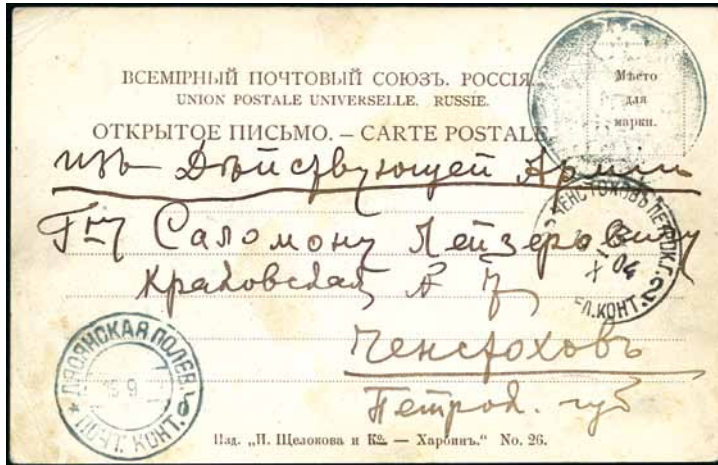 ВСЕМІРНЫЙ ПОЧТОВЫЙ СОЮЗЪ. РОССІЯ.
UNION POSTALE UNIVERSELLE. RUSSIE.
Мѣсто
для
марки.
ОТКРЫТОЕ ПИСЬМО. – CARTE POSTALE.
изъ Дѣйствующей Арміи
Гну Саломону Лейзеровичу
Краковская № 7
Ченстоховъ
Петрок. губ
ЧЕНСТОХОВЪ ПЕТРОК.Г.
КОНТ.
ЛЯОЯНСКАЯ ПОЛЕВ.
ПОЧТ. КОНТ.
Изд. „П. Щелокова и Ко. — Харбинъ." No. 26.